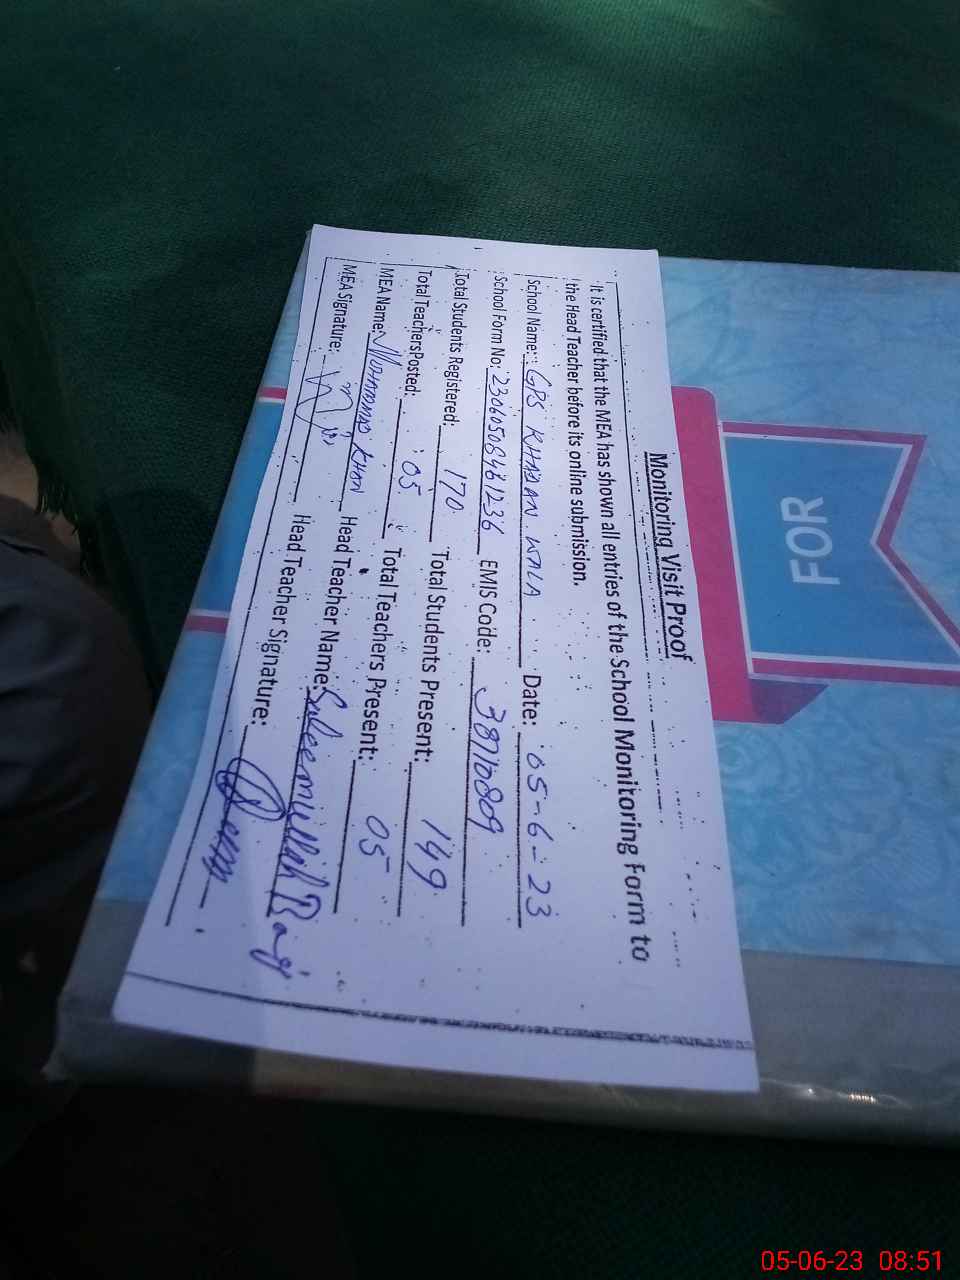 Monitoring Visit Proof
It is certified that the MEA has shown all entries of the School Monitoring Form to
the Head Teacher before its online submission.
School Name: GPS KHADAN WALA Date: 05-6-23
School Form No: 23060508481236 EMIS Code: 38710809
Total Students Registered: 170 Total Students Present: 149
Total Teachers Posted: 05 Total Teachers Present: 05
MEA Name: MUHAMMAD KHAN Head Teacher Name: Saleemullah
MEA Signature: Head Teacher Signature:
FOR
05-06-23 08:51